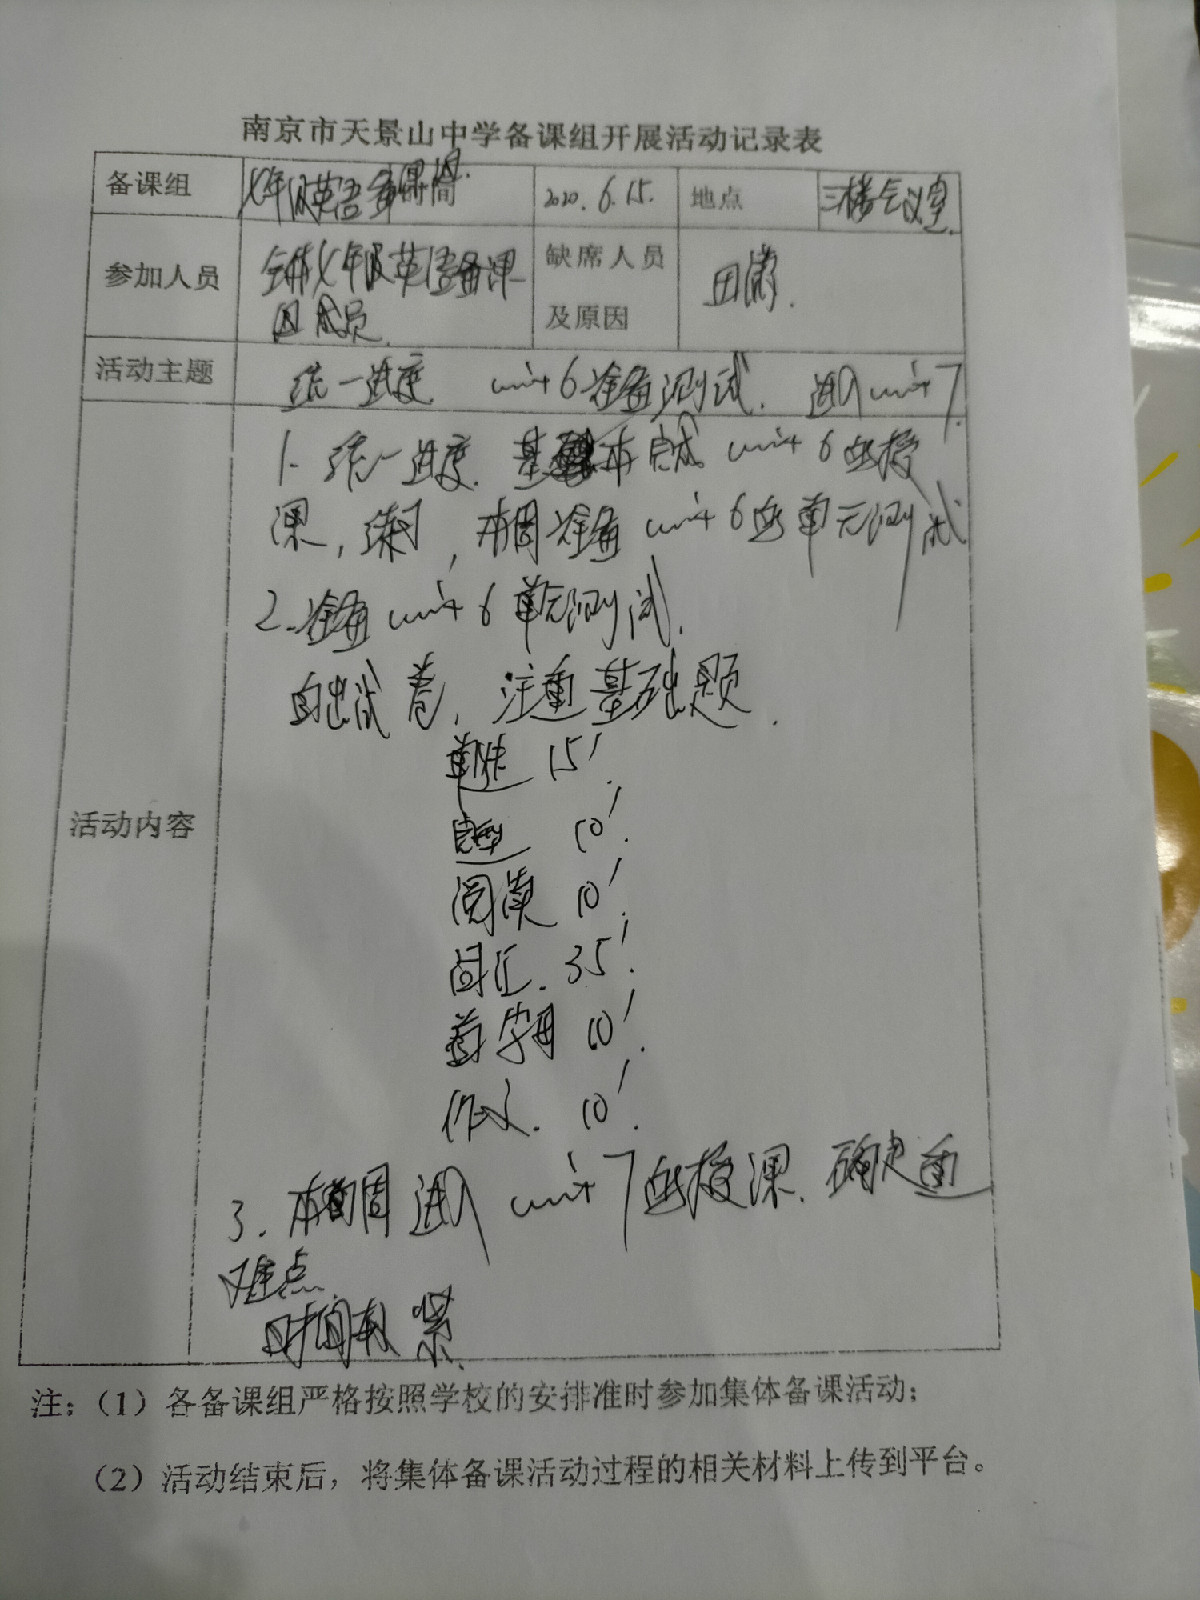 南京市天景山中学备课组开展活动记录表
备课组 七年级英语备课组 时间 2020.6.15. 地点 三楼会议室.
参加人员 全体七年级英语备课组成员. 缺席人员及原因
活动主题 统一进度 unit 6准备测试. 进入unit 7.
活动内容
1. 统一进度. 基本完成 unit 6的授
课，练习，本周准备 unit 6的单元测试
2. 准备 unit 6 单元测试.
自出试卷，注重基础题.
单选 15'.
完型 10'.
阅读 10'.
词汇. 35'.
首字母 10'.
作文. 10'.
3. 本周进入 unit 7的授课. 确定重
难点.
时间有紧.
注：（1）各备课组严格按照学校的安排准时参加集体备课活动；
（2）活动结束后，将集体备课活动过程的相关材料上传到平台。